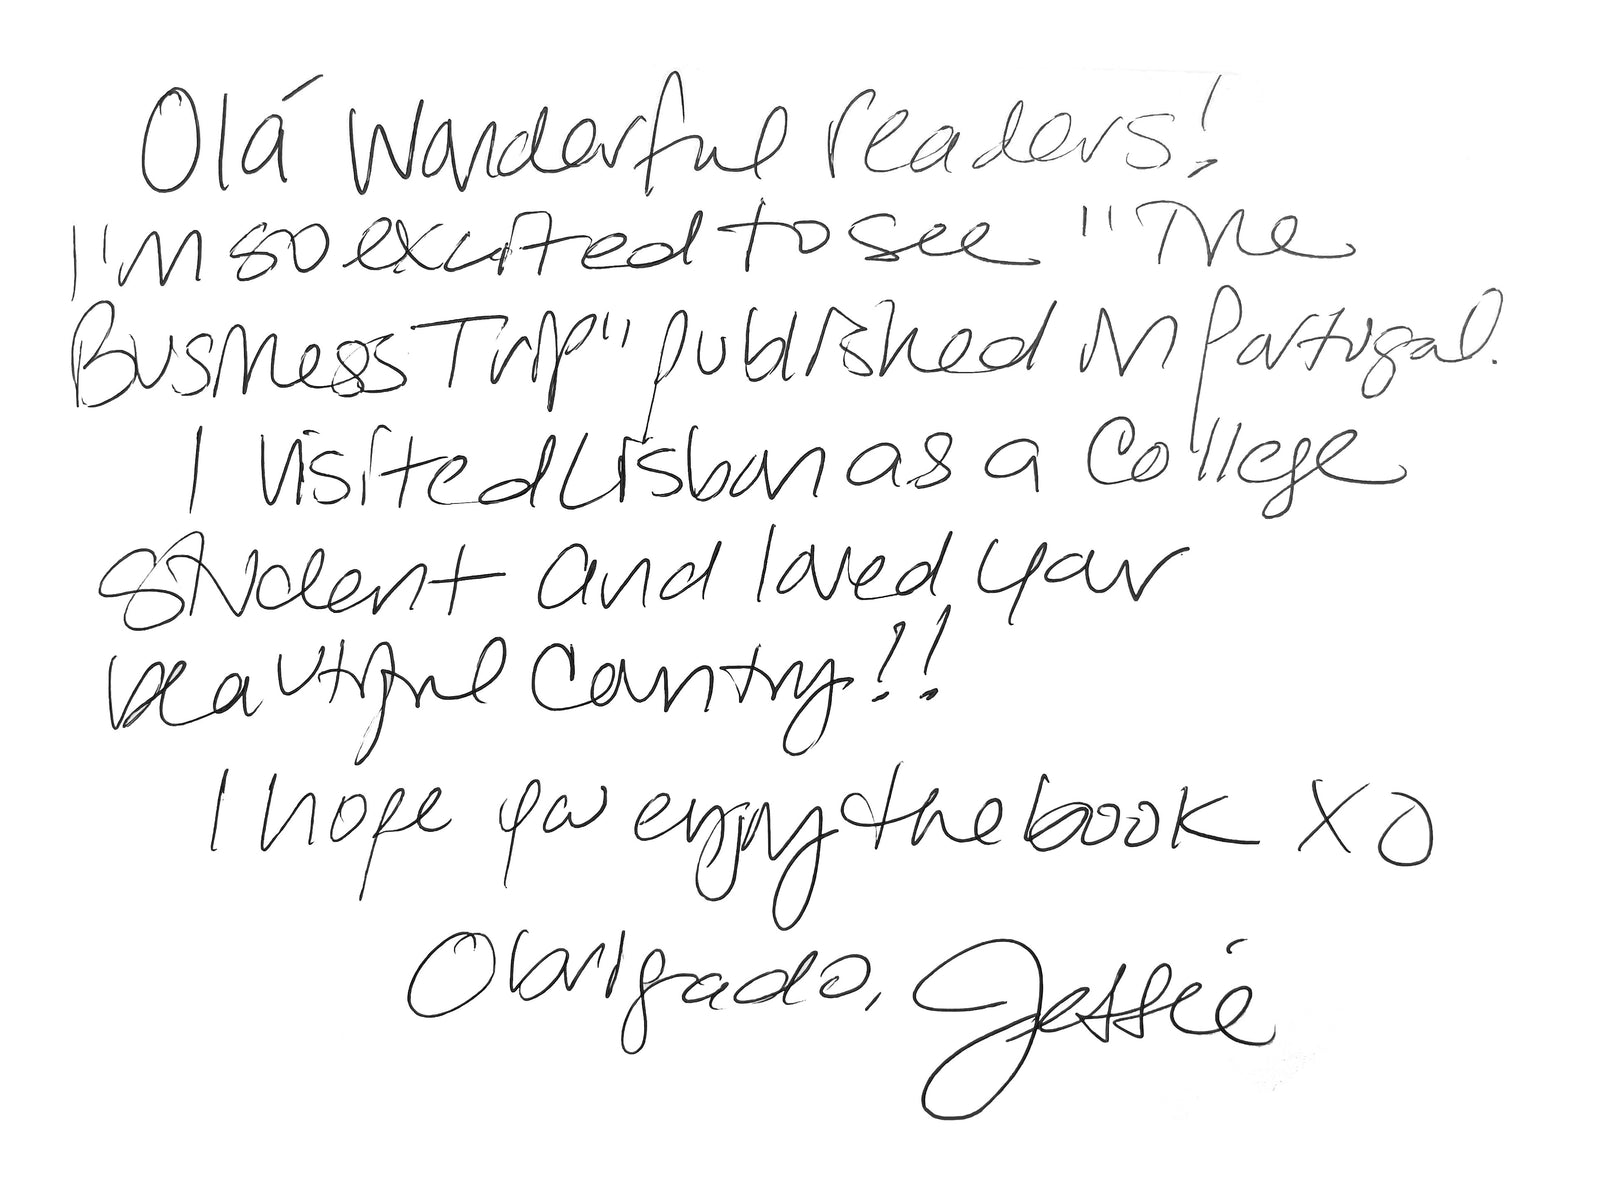 Olá wonderful readers!
I'm so excited to see "The
Business Trip" published in Portugal.
I visited Lisbon as a college
student and loved your
beautiful country!!
I hope you enjoy the book XO
Obrigado, Jessie